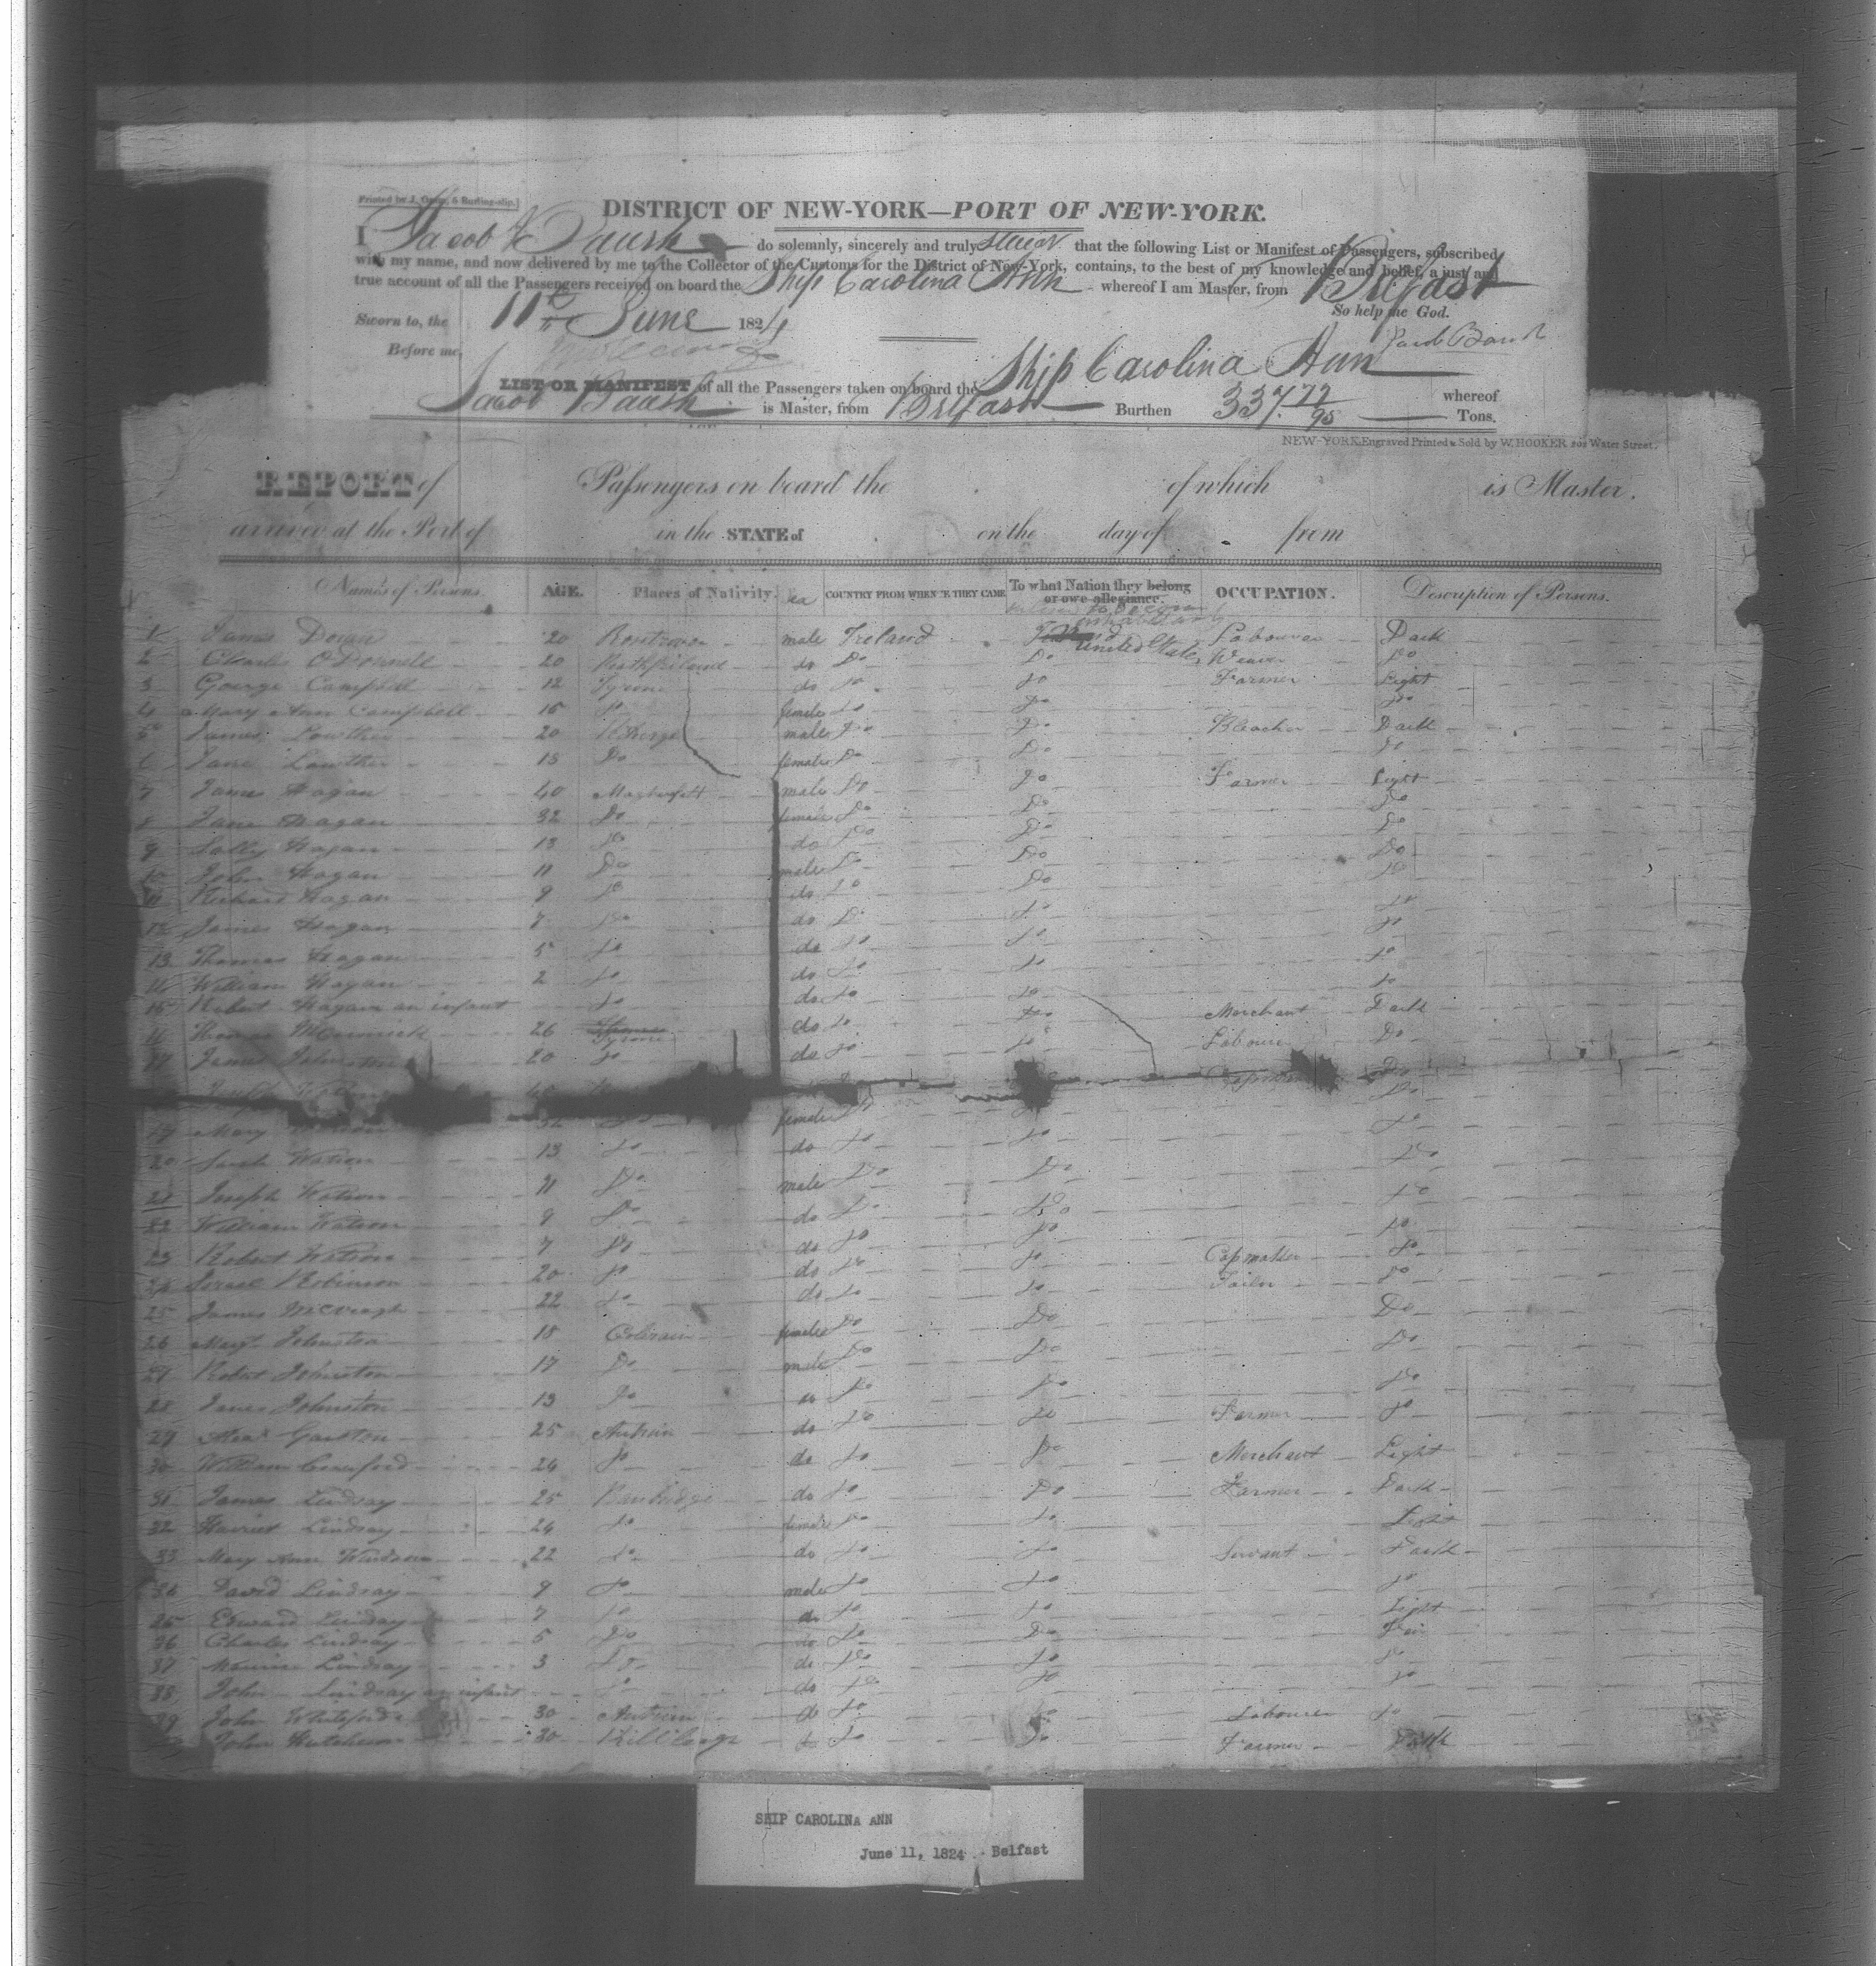 Printed by J. Oram, 5 Burling-slip.
DISTRICT OF NEW-YORK—PORT OF NEW-YORK.
I Jacob do solemnly, sincerely and truly swear that the following List or Manifest of Passengers, subscribed
with my name, and now delivered by me to the Collector of the Customs for the District of New-York, contains, to the best of my knowledge and belief, a just and
true account of all the Passengers received on board the Ship Carolina Ann whereof I am Master, from Belfast
So help me God.
Sworn to, the 11th June 1824
Before me,
LIST OR MANIFEST of all the Passengers taken on board the Ship Carolina Ann whereof
Jacob is Master, from Belfast Burthen 337 72/95 Tons.
NEW-YORK Engraved Printed & Sold by W. HOOKER 202 Water Street.
REPORT of Passengers on board the of which is Master.
arrived at the Port of in the STATE of on the day of from
Names of Persons. AGE. Places of Nativity. COUNTRY FROM WHENCE THEY CAME To what Nation they belong or owe allegiance. OCCUPATION. Description of Persons.
inhabitants
1 James 20 male Ireland United States Labourer Dark
2 Charles O'Donnell 20 Rathfriland do Do Do Weaver Do
3 George Campbell 12 Tyrone do Do Do Farmer Light
4 Mary Ann Campbell 15 Do female Do Do Do
5 James Lowther 20 male Do Do Bleacher Dark
6 Jane Lowther 18 Do female Do Do Do
7 James Hagan 40 male Do Do Farmer Light
8 Jane Hagan 32 Do female Do Do Do
9 Sally Hagan 13 Do do Do Do Do
10 John Hagan 11 Do male Do Do Do
11 Richard Hagan 9 Do do Do Do Do
12 James Hagan 7 Do do Do Do Do
13 Thomas Hagan 5 Do do Do Do Do
14 William Hagan 2 Do do Do Do Do
15 Robert Hagan an infant Do do Do Do Do
16 Thomas McCormick 26 Tyrone do Do Do Merchant Dark
17 James Johnston 20 Do do Do Do Labourer Do
Joseph Do
19 Mary female Do Do Do
20 Sarah Watson 13 Do do Do Do Do
21 Joseph Watson 11 Do male Do Do Do
22 William Watson 9 Do do Do Do Do
23 Robert Watson 7 Do do Do Do Do
24 Robinson 20 Do do Do Do Capmaker Do
25 James 22 Do do Do Do Tailor Do
26 Mary Johnston 18 Colerain female Do Do Do
27 Robert Johnston 17 Do male Do Do Do
28 James Johnston 13 Do do Do Do Do
29 Alexr 25 Antrim do Do Do Farmer Do
30 William Crawford 24 Do do Do Do Merchant Light
31 James Lindsay 25 Banbridge do Do Do Farmer Dark
32 Harriet Lindsay 24 Do female Do Do Light
33 Mary Ann 22 Do do Do Do Servant Dark
34 David Lindsay 9 Do male Do Do Do
35 Edward Lindsay 7 Do do Do Do Light
36 Charles Lindsay 5 Do do Do Do Fair
37 Lindsay 3 Do do Do Do Do
38 John Lindsay an infant Do do Do Do Do
39 John Whiteford 30 Antrim do Do Do Labourer Do
John 30 do Do Do Farmer Dark
SHIP CAROLINA ANN
June 11, 1824 - Belfast